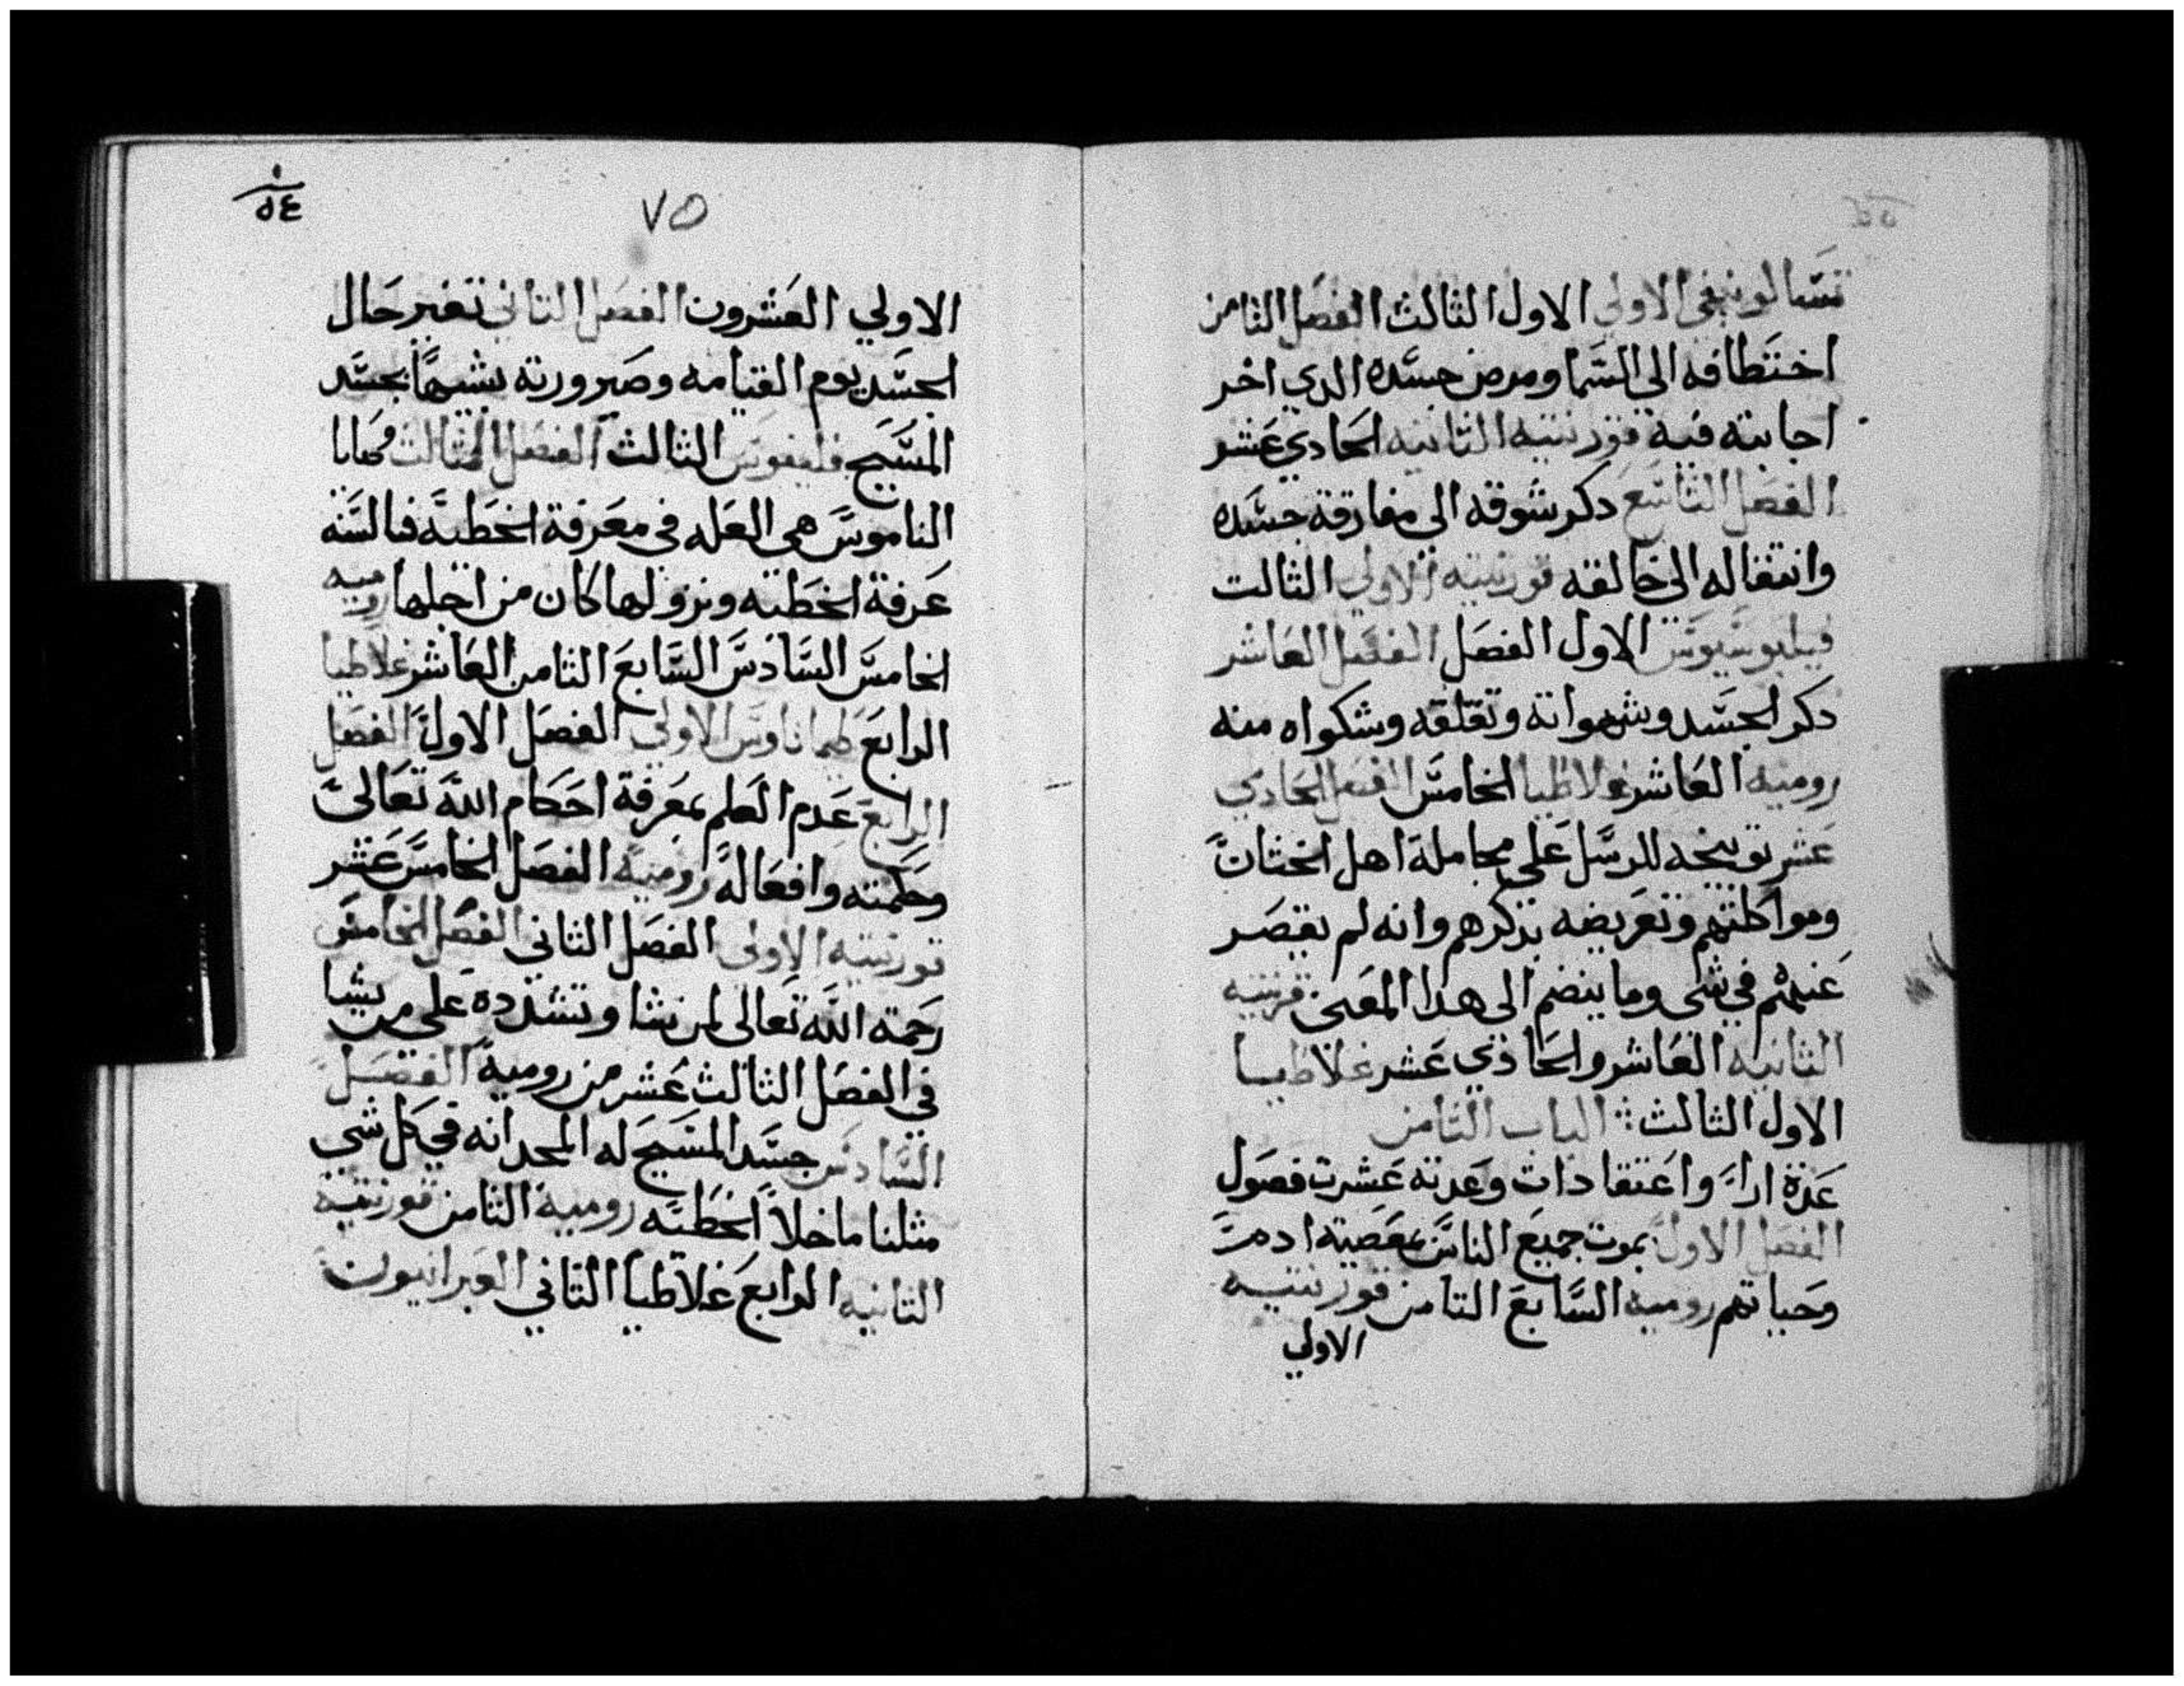 تسالونيقى الاولي الاول الثالث الفصل الثامن
اختطافه الى السما ومرض جسده الدي اخر
اجابته فيه قورنتيه الثانيه الحادي عشر
الفصل التاسع دكر شوقه الى مفارقة جسده
وانتقاله الى خالقه قورنتيه الاولى الثالت
فيليبوسيوس الاول الفصل الفصل العاشر
دكر الجسد وشهواته وتقلقه وشكواه منه
روميه العاشر غلاطيا الخامس الفصل الحادي
عشر توبيخه للرسل على مجاملة اهل الختان
ومواكلتهم وتعريضه بذكرهم وانه لم يقصر
عنهم في شى وما ينضم الى هدا المعنى قرنتيه
الثانيه العاشر والحادي عشر غلاطيا
الاول الثالث الباب الثامن
عدة ارا واعتقادات وعدته عشرت فصول
الفصل الاول بموت جميع الناس بمعصية ادم
وحياتهم روميه السابع الثامن قورنتيه
الاولي
٧٥
١
٥٤
الاولي العشرون الفصل التاني تغير حال
الجسد يوم القيامه وصيرورته شبيهًا بجسد
المسيح فليفوس الثالث الفصل الثالث
الناموس هى العله في معرفة الخطيه فبالسنه
عرفة الخطيه ونزولها كان من اجلها روميه
الخامس السادس السابع الثامن العاشر غلاطيا
الرابع طيماتاوس الاولي الفصل الاول الفصل
الرابع عدم العلم بمعرفة احكام الله تعالى
وحكمته وافعاله روميه الفصل الخامس عشر
قورنتيه الاولى الفصل الثاني الفصل الخامس
رحمة الله تعالى لمن يشا وتشدده على من يشا
في الفصل الثالث عشر من روميه الفصل
السادس جسد المسيح له المجد انه في كل شي
مثلنا ما خلا الخطيه روميه الثامن قورنتيه
الثانيه الرابع غلاطيا التاني العبرانيون